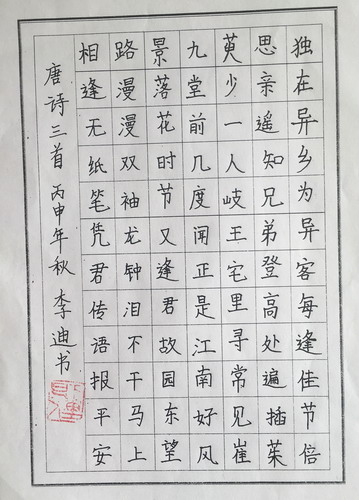 独在异乡为异客每逢佳节倍
思亲遥知兄弟登高处遍插茱
萸少一人岐王宅里寻常见崔
九堂前几度闻正是江南好风
景落花时节又逢君故园东望
路漫漫双袖龙钟泪不干马上
相逢无纸笔凭君传语报平安
唐诗三首 丙申年秋 李迪书